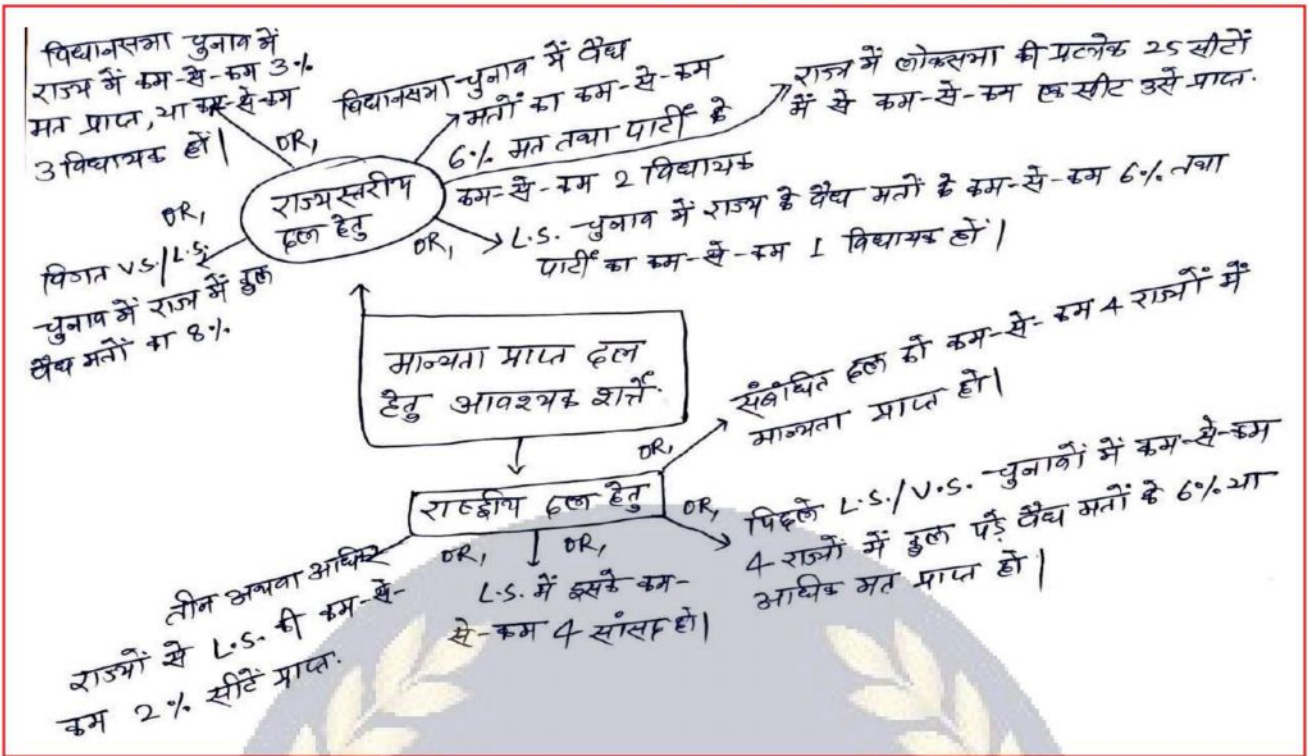 विधानसभा चुनाव में
राज्य में कम-से-कम 3%
मत प्राप्त, या कम-से-कम
3 विधायक हों|
OR,
विधानसभा-चुनाव में वैध
मतों का कम-से-कम
6% मत तथा पार्टी के
कम-से-कम 2 विधायक
राज्य में लोकसभा की प्रत्येक 25 सीटों
में से कम-से-कम एक सीट उसे प्राप्त.
राज्यस्तरीय
दल हेतु
OR,
विगत V.S./L.S.
चुनाव में राज्य में कुल
वैध मतों का 8%
OR,
L.S. -चुनाव में राज्य के वैध मतों के कम-से-कम 6% तथा
पार्टी का कम-से-कम 1 विधायक हों|
मान्यता प्राप्त दल
हेतु आवश्यक शर्तें
OR,
संबंधित दल को कम-से-कम 4 राज्यों में
मान्यता प्राप्त हो|
राष्ट्रीय दल हेतु
OR,
पिछले L.S./V.S. -चुनावों में कम-से-कम
4-राज्यों में कुल पड़े वैध मतों के 6% या
अधिक मत प्राप्त हो|
OR,
तीन अथवा अधिक
राज्यों से L.S. की कम-से-
कम 2% सीटें प्राप्त.
OR,
L.S. में इसके कम-
से-कम 4 सांसद हो|